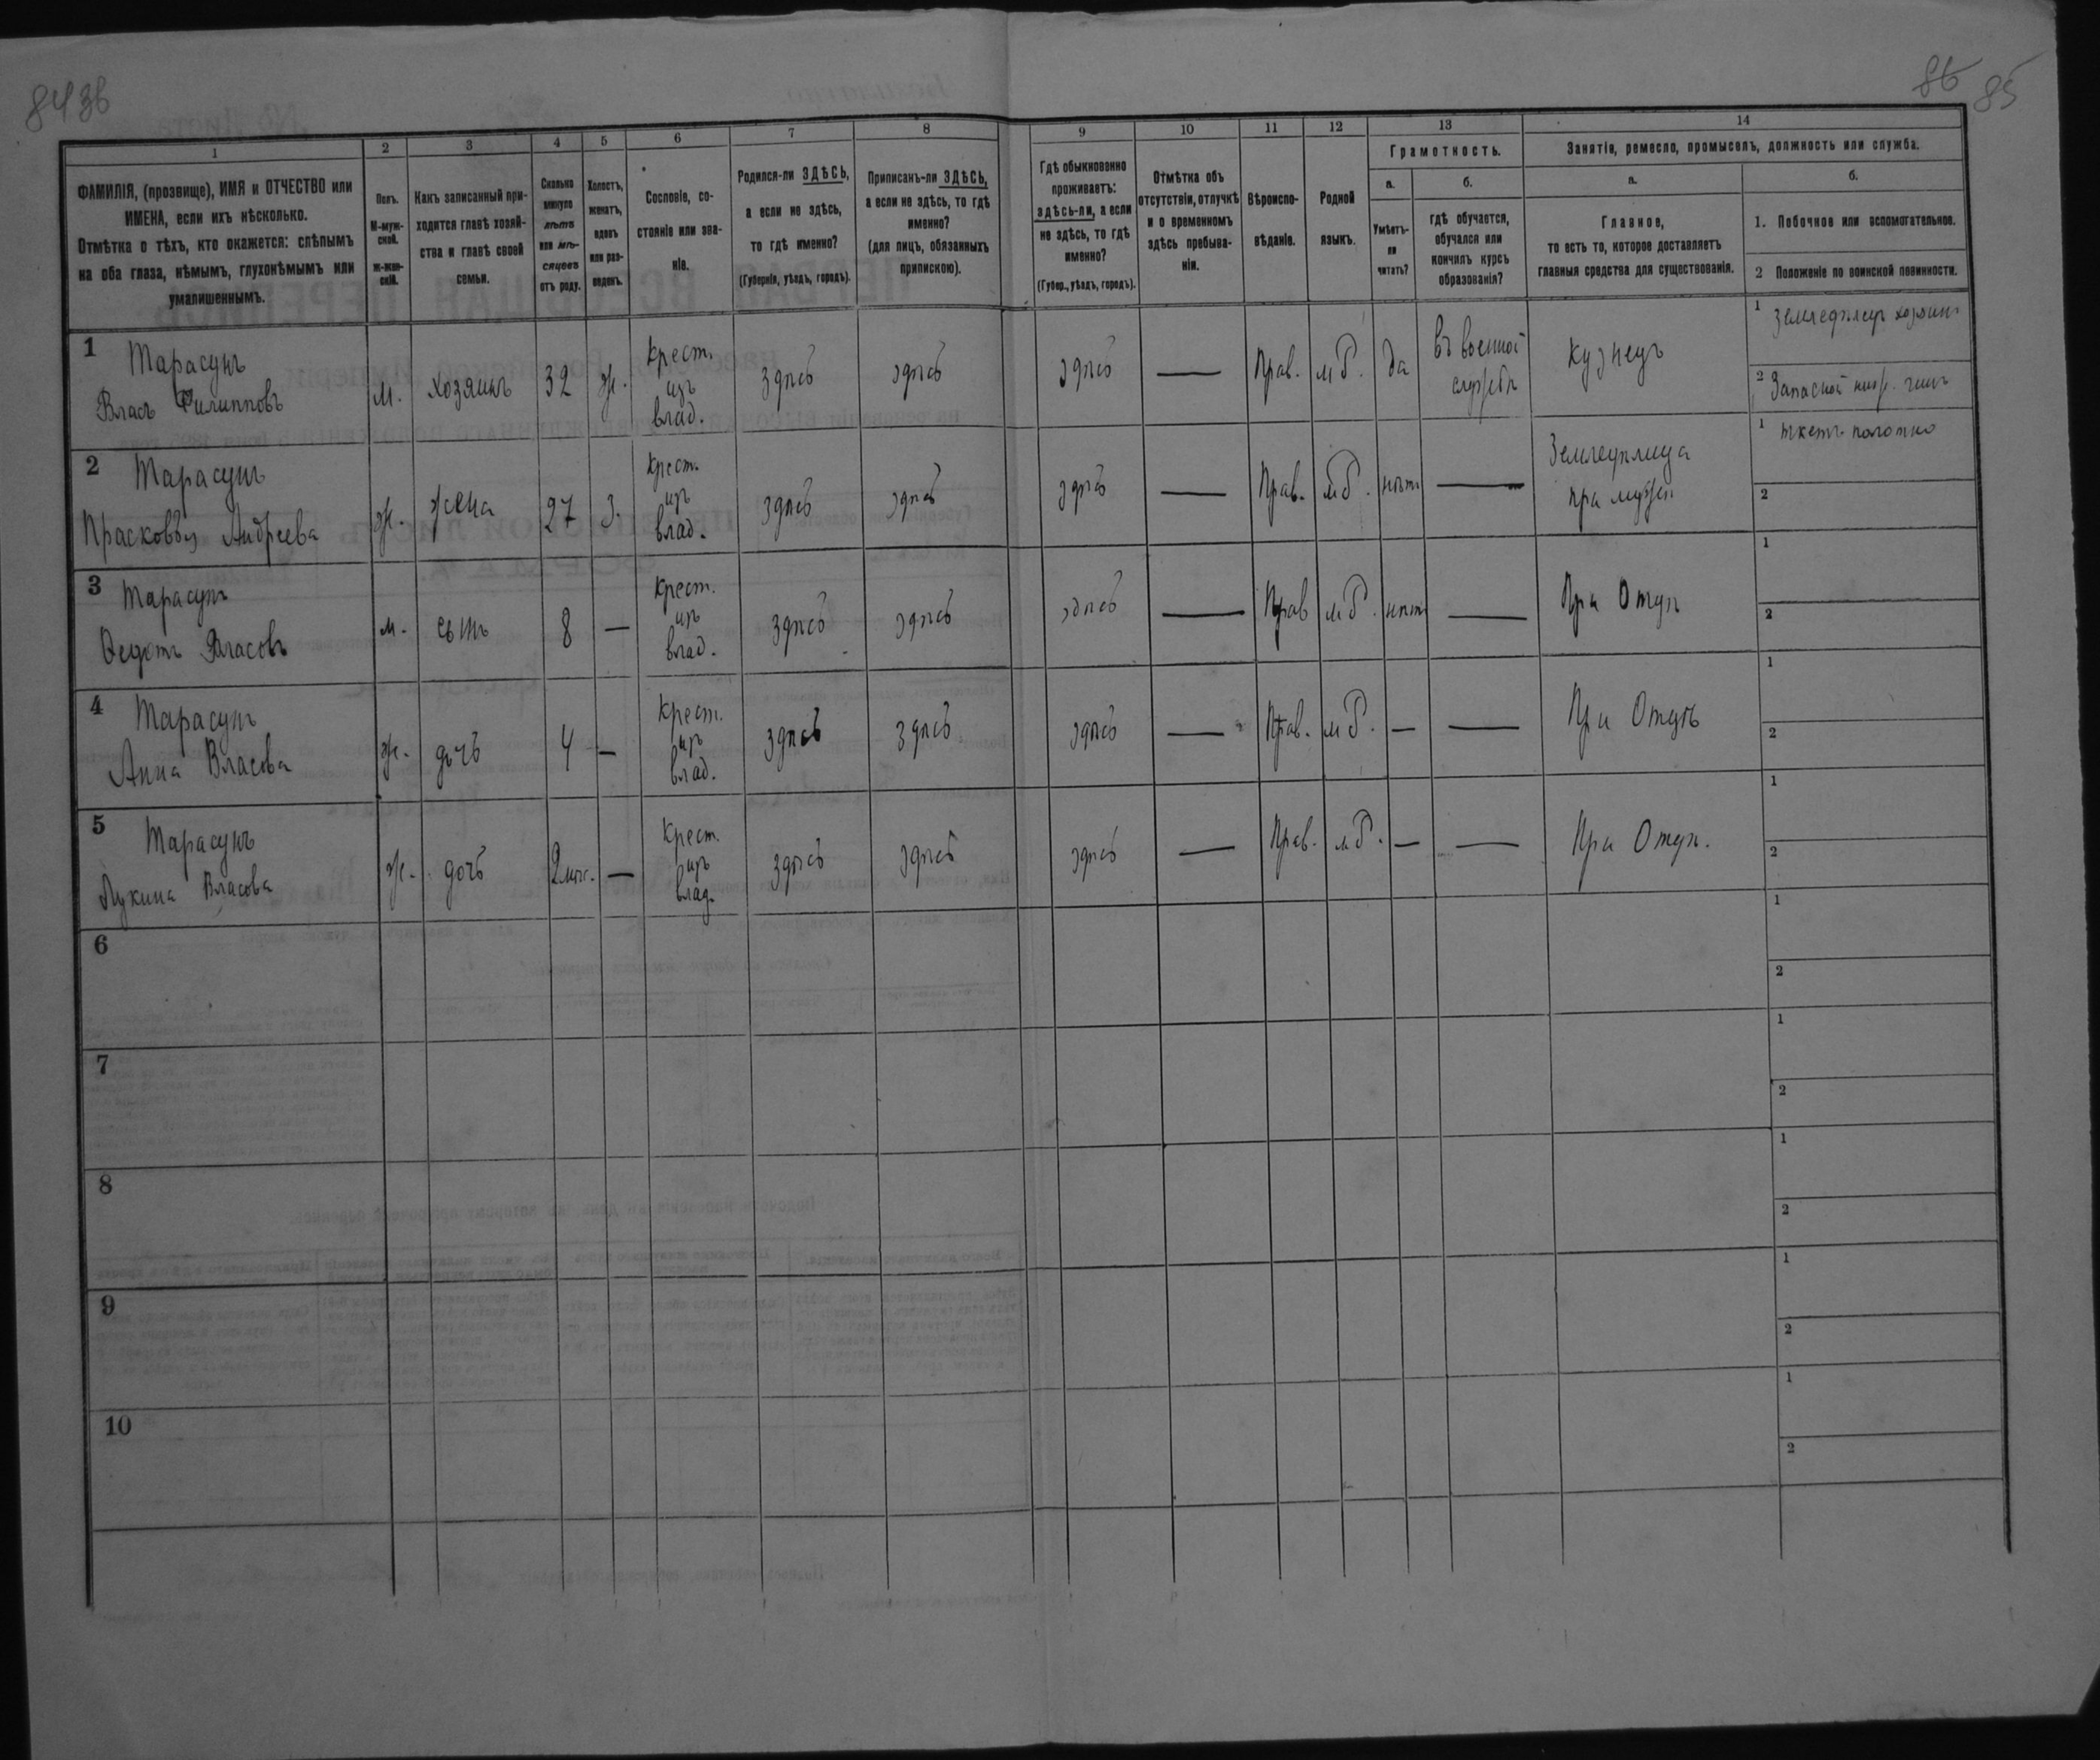 8436
86 85
1 2 3 4 5 6 7 8 9 10 11 12 13 14
ФАМИЛІЯ, (прозвище), ИМЯ и ОТЧЕСТВО или
ИМЕНА, если ихъ нѣсколько.
Отмѣтка о тѣхъ, кто окажется: слѣпымъ
на оба глаза, нѣмымъ, глухонѣмымъ или
умалишеннымъ.
Полъ.
М-муж-
ской.
ж-жен-
скій.
Какъ записанный при-
ходится главѣ хозяй-
ства и главѣ своей
семьи.
Сколько
минуло
лѣтъ
или мѣ-
сяцевъ
отъ роду.
Холостъ,
женатъ,
вдовъ
или раз-
веденъ.
Сословіе, со-
стояніе или зва-
ніе.
Родился-ли ЗДѢСЬ,
а если не здѣсь,
то гдѣ именно?
(Губернія, уѣздъ, городъ).
Приписанъ-ли ЗДѢСЬ,
а если не здѣсь, то гдѣ
именно?
(для лицъ, обязанныхъ
припискою).
Гдѣ обыкновенно
проживаетъ:
здѣсь-ли, а если
не здѣсь, то гдѣ
именно?
(Губер., уѣздъ, городъ).
Отмѣтка объ
отсутствіи, отлучкѣ
и о временномъ
здѣсь пребыва-
ніи.
Вѣроиспо-
вѣданіе.
Родной
языкъ.
Грамотность.
а.
Умѣетъ-
ли
читать?
б.
гдѣ обучается,
обучался или
кончилъ курсъ
образованія?
Занятіе, ремесло, промыселъ, должность или служба.
а.
Главное,
то есть то, которое доставляетъ
главныя средства для существованія.
б.
1. Побочное или вспомогательное.
2 Положеніе по воинской повинности.
1 Тарасунъ
Власъ Филипповъ
м.
хозяинъ
32
ж.
крест.
изъ
влад.
здѣсь
здѣсь
здѣсь
—
Прав.
мб.
да
въ военной
службѣ
кузнецъ
1 земледѣлецъ хозяинъ
2 Запасной ниж. чинъ
2 Тарасунъ
Прасковья Андреева
ж.
жена
27
з.
крест.
изъ
влад.
здѣсь
здѣсь
здѣсь
—
Прав.
мб.
нѣтъ
—
при мужѣ
1 ткетъ полотно
2
3 Тарасунъ
Ѳедотъ Власовъ
м.
сынъ
8
—
крест.
изъ
влад.
здѣсь
здѣсь
здѣсь
—
Прав
мб.
нѣтъ
—
При Отцѣ
1
2
4 Тарасунъ
Анна Власова
ж.
дочь
4
—
крест.
изъ
влад.
здѣсь
здѣсь
здѣсь
—
Прав.
мб.
—
—
При Отцѣ
1
2
5 Тарасунъ
Власова
ж.
дочь
2 мѣс.
—
крест.
изъ
влад.
здѣсь
здѣсь
здѣсь
—
Прав.
мб.
—
—
При Отцѣ.
1
2
6
1
2
7
1
2
8
1
2
9
1
2
10
1
2